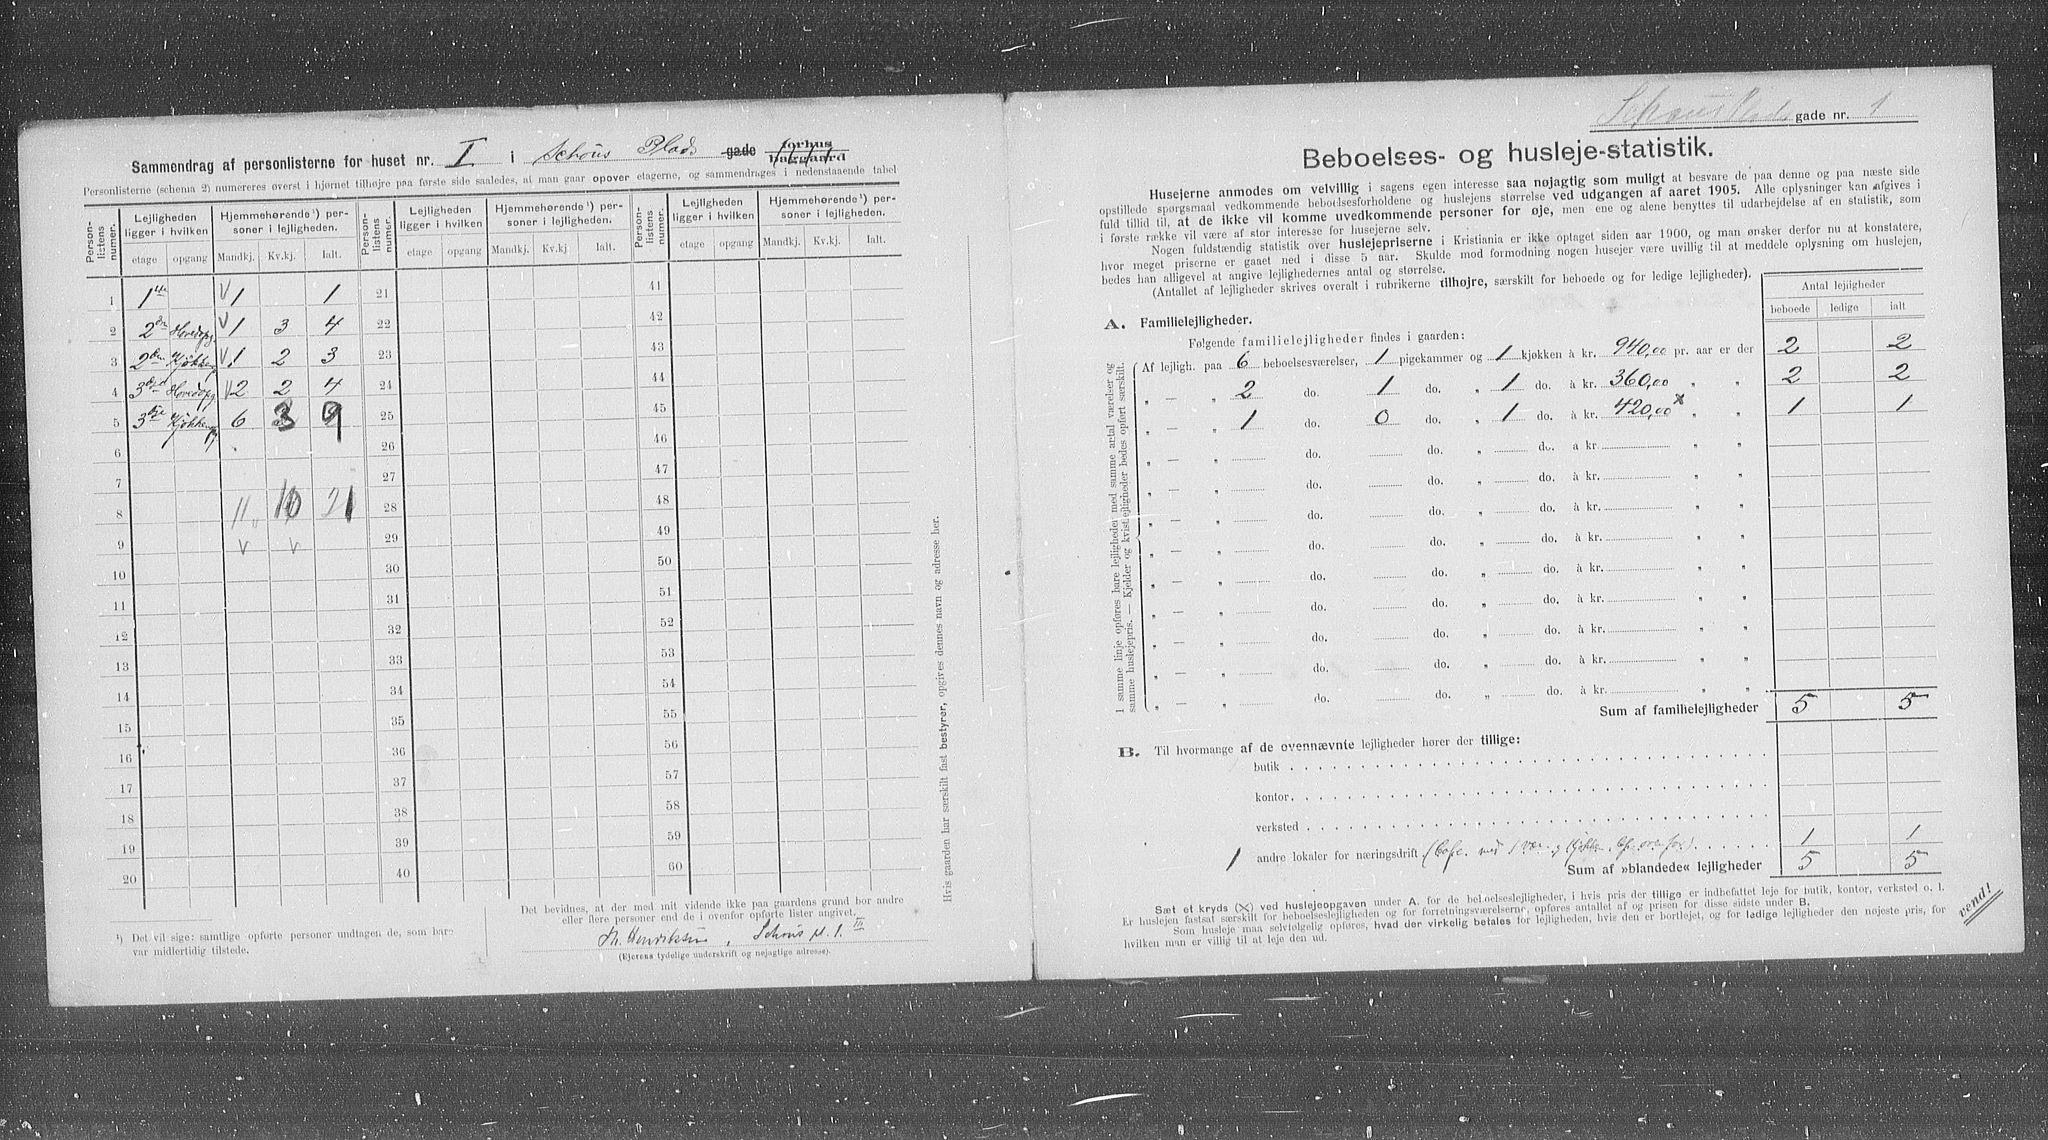 Sammendrag af personlisterne for huset nr. I i Schous Plads gade forhus baggaard
Personlisterne (schema 2) numereres øverst i hjørnet tilhøjre paa første side saaledes, at man gaar opover etagerne, og sammendrages i nedenstaaende tabel
Person-listens numer. Lejligheden ligger i hvilken Hjemmehørende¹) personer i lejligheden. Person-listens numer. Lejligheden ligger i hvilken Hjemmehørende¹) personer i lejligheden. Person-listens numer. Lejligheden ligger i hvilken Hjemmehørende¹) personer i lejligheden.
etage opgang Mandkj. Kv.kj. Ialt. etage opgang Mandkj. Kv.kj. Ialt. etage opgang Mandkj. Kv.kj. Ialt.
1 1ste √1 1 21 41
2 2den Hovedopg √1 3 4 22 42
3 2den Kjøkkenopg √1 2 3 23 43
4 3die Hovedopg √2 2 4 24 44
5 3die Kjøkkenopg 6 3 9 25 45
6 26 46
7 27 47
8 11 10 21 28 48
9 v v 29 49
10 30 50
11 31 51
12 32 52
13 33 53
14 34 54
15 35 55
16 36 56
17 37 57
18 38 58
19 39 59
20 40 60
¹) Det vil sige: samtlige opførte personer undtagen de, som bare
var midlertidig tilstede.
Det bevidnes, at der med mit vidende ikke paa gaardens grund bor andre
eller flere personer end de i ovenfor opførte lister angivet.
Th. Henriksen, Schous pl. 1. III
(Ejerens tydelige underskrift og nøjagtige adresse).
Hvis gaarden har særskilt fast bestyrer, opgives dennes navn og adresse her.
Schous Plads gade nr. 1
Beboelses- og husleje-statistik.
Husejerne anmodes om velvillig i sagens egen interesse saa nøjagtig som muligt at besvare de paa denne og paa næste side
opstillede spørgsmaal vedkommende beboelsesforholdene og huslejens størrelse ved udgangen af aaret 1905. Alle oplysninger kan afgives i
fuld tillid til, at de ikke vil komme uvedkommende personer for øje, men ene og alene benyttes til udarbejdelse af en statistik, som
i første række vil være af stor interesse for husejerne selv.
Nogen fuldstændig statistik over huslejepriserne i Kristiania er ikke optaget siden aar 1900, og man ønsker derfor nu at konstatere,
hvor meget priserne er gaaet ned i disse 5 aar. Skulde mod formodning nogen husejer være uvillig til at meddele oplysning om huslejen,
bedes han alligevel at angive lejlighedernes antal og størrelse.
(Antallet af lejligheder skrives overalt i rubrikerne tilhøjre, særskilt for beboede og for ledige lejligheder).
Antal lejligheder
beboede ledige ialt
A. Familielejligheder.
Følgende familielejligheder findes i gaarden:
Af lejligh. paa 6 beboelsesværelser, 1 pigekammer og 1 kjøkken à kr. 940,00 pr. aar er der 2 2
„ — „ 2 do. 1 do. „ 1 do. à kr. 360,00 „ „ 2 2
„ — „ 1 do. 0 do. „ 1 do. à kr. 420,00 x „ „ 1 1
„ — „ do. do. „ do. à kr. „ „
„ — „ do. do. „ do. à kr. „ „
„ — „ do. do. „ do. à kr. „ „
„ — „ do. do. „ do. à kr. „ „
„ — „ do. do. „ do. à kr. „ „
„ — „ do. do. „ do. à kr. „ „
„ — „ do. do. „ do. à kr. „ „
„ — „ do. do. „ do. à kr. „ „
„ — „ do. do. „ do. à kr. „ „
I samme linje opføres bare lejligheder med samme antal værelser og
samme huslejepris. — Kjelder og kvistlejligheder bedes opført særskilt.
Sum af familielejligheder 5 5
B. Til hvormange af de ovennævnte lejligheder hører der tillige:
butik
kontor
verksted
1 andre lokaler for næringsdrift (Cafe. med 1 vær. og Kjøkken 1 1
Sum af »blandede« lejligheder 5 5
Sæt et kryds (X) ved huslejeopgaven under A. for de beboelseslejligheder, i hvis pris der tillige er indbefattet leje for butik, kontor, verksted o. l.
Er huslejen fastsat særskilt for beboelseslejligheden og for forretningsværelserne, opføres antallet af og prisen for disse sidste under B.
Som husleje maa selvfølgelig opføres, hvad der virkelig betales for lejligheden, hvis den er bortlejet, og for ladige lejligheder den nøjeste pris, for
hvilken man er villig til at leje den ud.
vend!